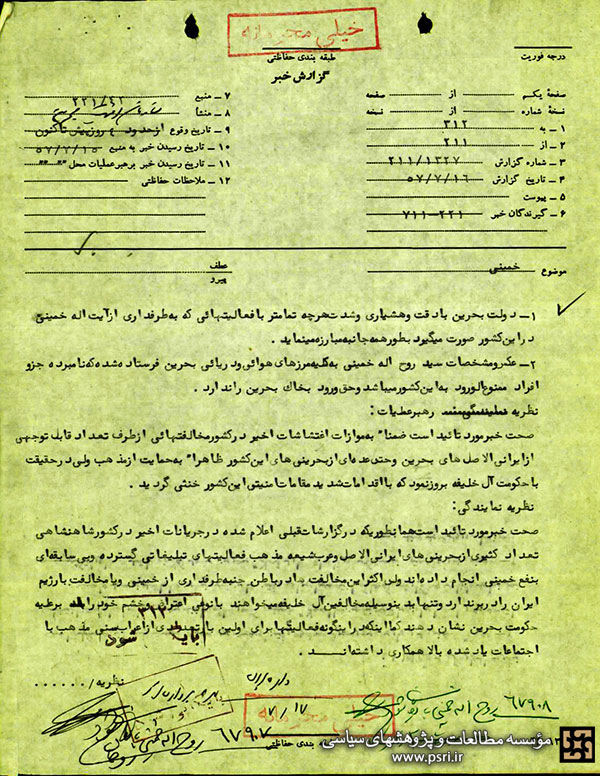 خیلی محرمانه
درجه فوریت
طبقه بندی حفاظتی
گزارش خبر
صفحه یکم از صفحه
نسخه شماره از نسخه
۱ – به ۳۱۲
۲ – از ۲۱۱
۳ – شماره گزارش ۲۱۱/۱۳۲۷
۴ – تاریخ گزارش ۵۷/۷/۱۶
۵ – پیوست
۶ – گیرندگان خبر ۲۲۱–۷۱۱
۷ – منبع
۸ – منشأ
۹ – تاریخ وقوع ازحدود ۴ روزپیش تاکنون
۱۰ – تاریخ رسیدن خبر به منبع ۵۷/۷/۱۵
۱۱ – تاریخ رسیدن خبر برهبرعملیات محل " " "
۱۲ – ملاحظات حفاظتی
موضوع خمینی
عطف
پیرو
۱– دولت بحرین بادقت وهشیاری وشدت هرچه تمامتر بافعالیتهائی که به طرفداری ازآیت اله خمینی
دراین کشور صورت میگیرد بطورهمه جانبه مبارزه مینماید .
۲– عکس ومشخصات سید روح اله خمینی به کلیه مرزهای هوائی ودریائی بحرین فرستاده شده که نامبرده جزو
افراد ممنوع الورود به این کشورمیباشد وحق ورود بخاک بحرین راندارد .
نظریه رهبرعملیات :
صحت خبرمورد تائید است ضمنا" به موازات اغتشاشات اخیر درکشورمخالفتهائی ازطرف تعداد قابل توجهی
ازایرانی الاصل های بحرین وحتی عده ای ازبحرینی های این کشور ظاهرا" به حمایت ازمذهب ولی درحقیقت
باحکومت آل خلیفه بروزنمود که بااقدامات شدید مقامات امنیتی این کشور خنثی گردید .
نظریه نمایندگی :
صحت خبرمورد تائید است همانطوریکه درگزارشات قبلی اعلام شده درجریانات اخیر درکشورشاهنشاهی
تعداد کثیری ازبحرینی های ایرانی الاصل وعرب شیعه مذهب فعالیتهای تبلیغاتی گسترده وبی سابقه ای
بنفع خمینی انجام داده اند ولی اکثراین مخالفت ها درباطن جنبه طرفداری از خمینی ویا مخالفت بارژیم
ایران رادربرندارد وتنها بدینوسیله مخالفین آل خلیفه میخواهند بانوعی اعتراض وخشم خودرا برعلیه
حکومت بحرین نشان دهند کمااینکه دراینگونه فعالیتها برای اولین بار تعدادی ازاعراب سنی مذهب با
اجتماعات یادشده بالا همکاری داشته اند .
۳۱۲
باید شود
نظریه / . . . . . .
۷/۱۷
خیلی محرمانه
طبقه بندی حفاظتی
۶۷۹۰۸
۶۷۹۰۷
مؤسسه مطالعات و پژوهشهای سیاسی
www.psri.ir